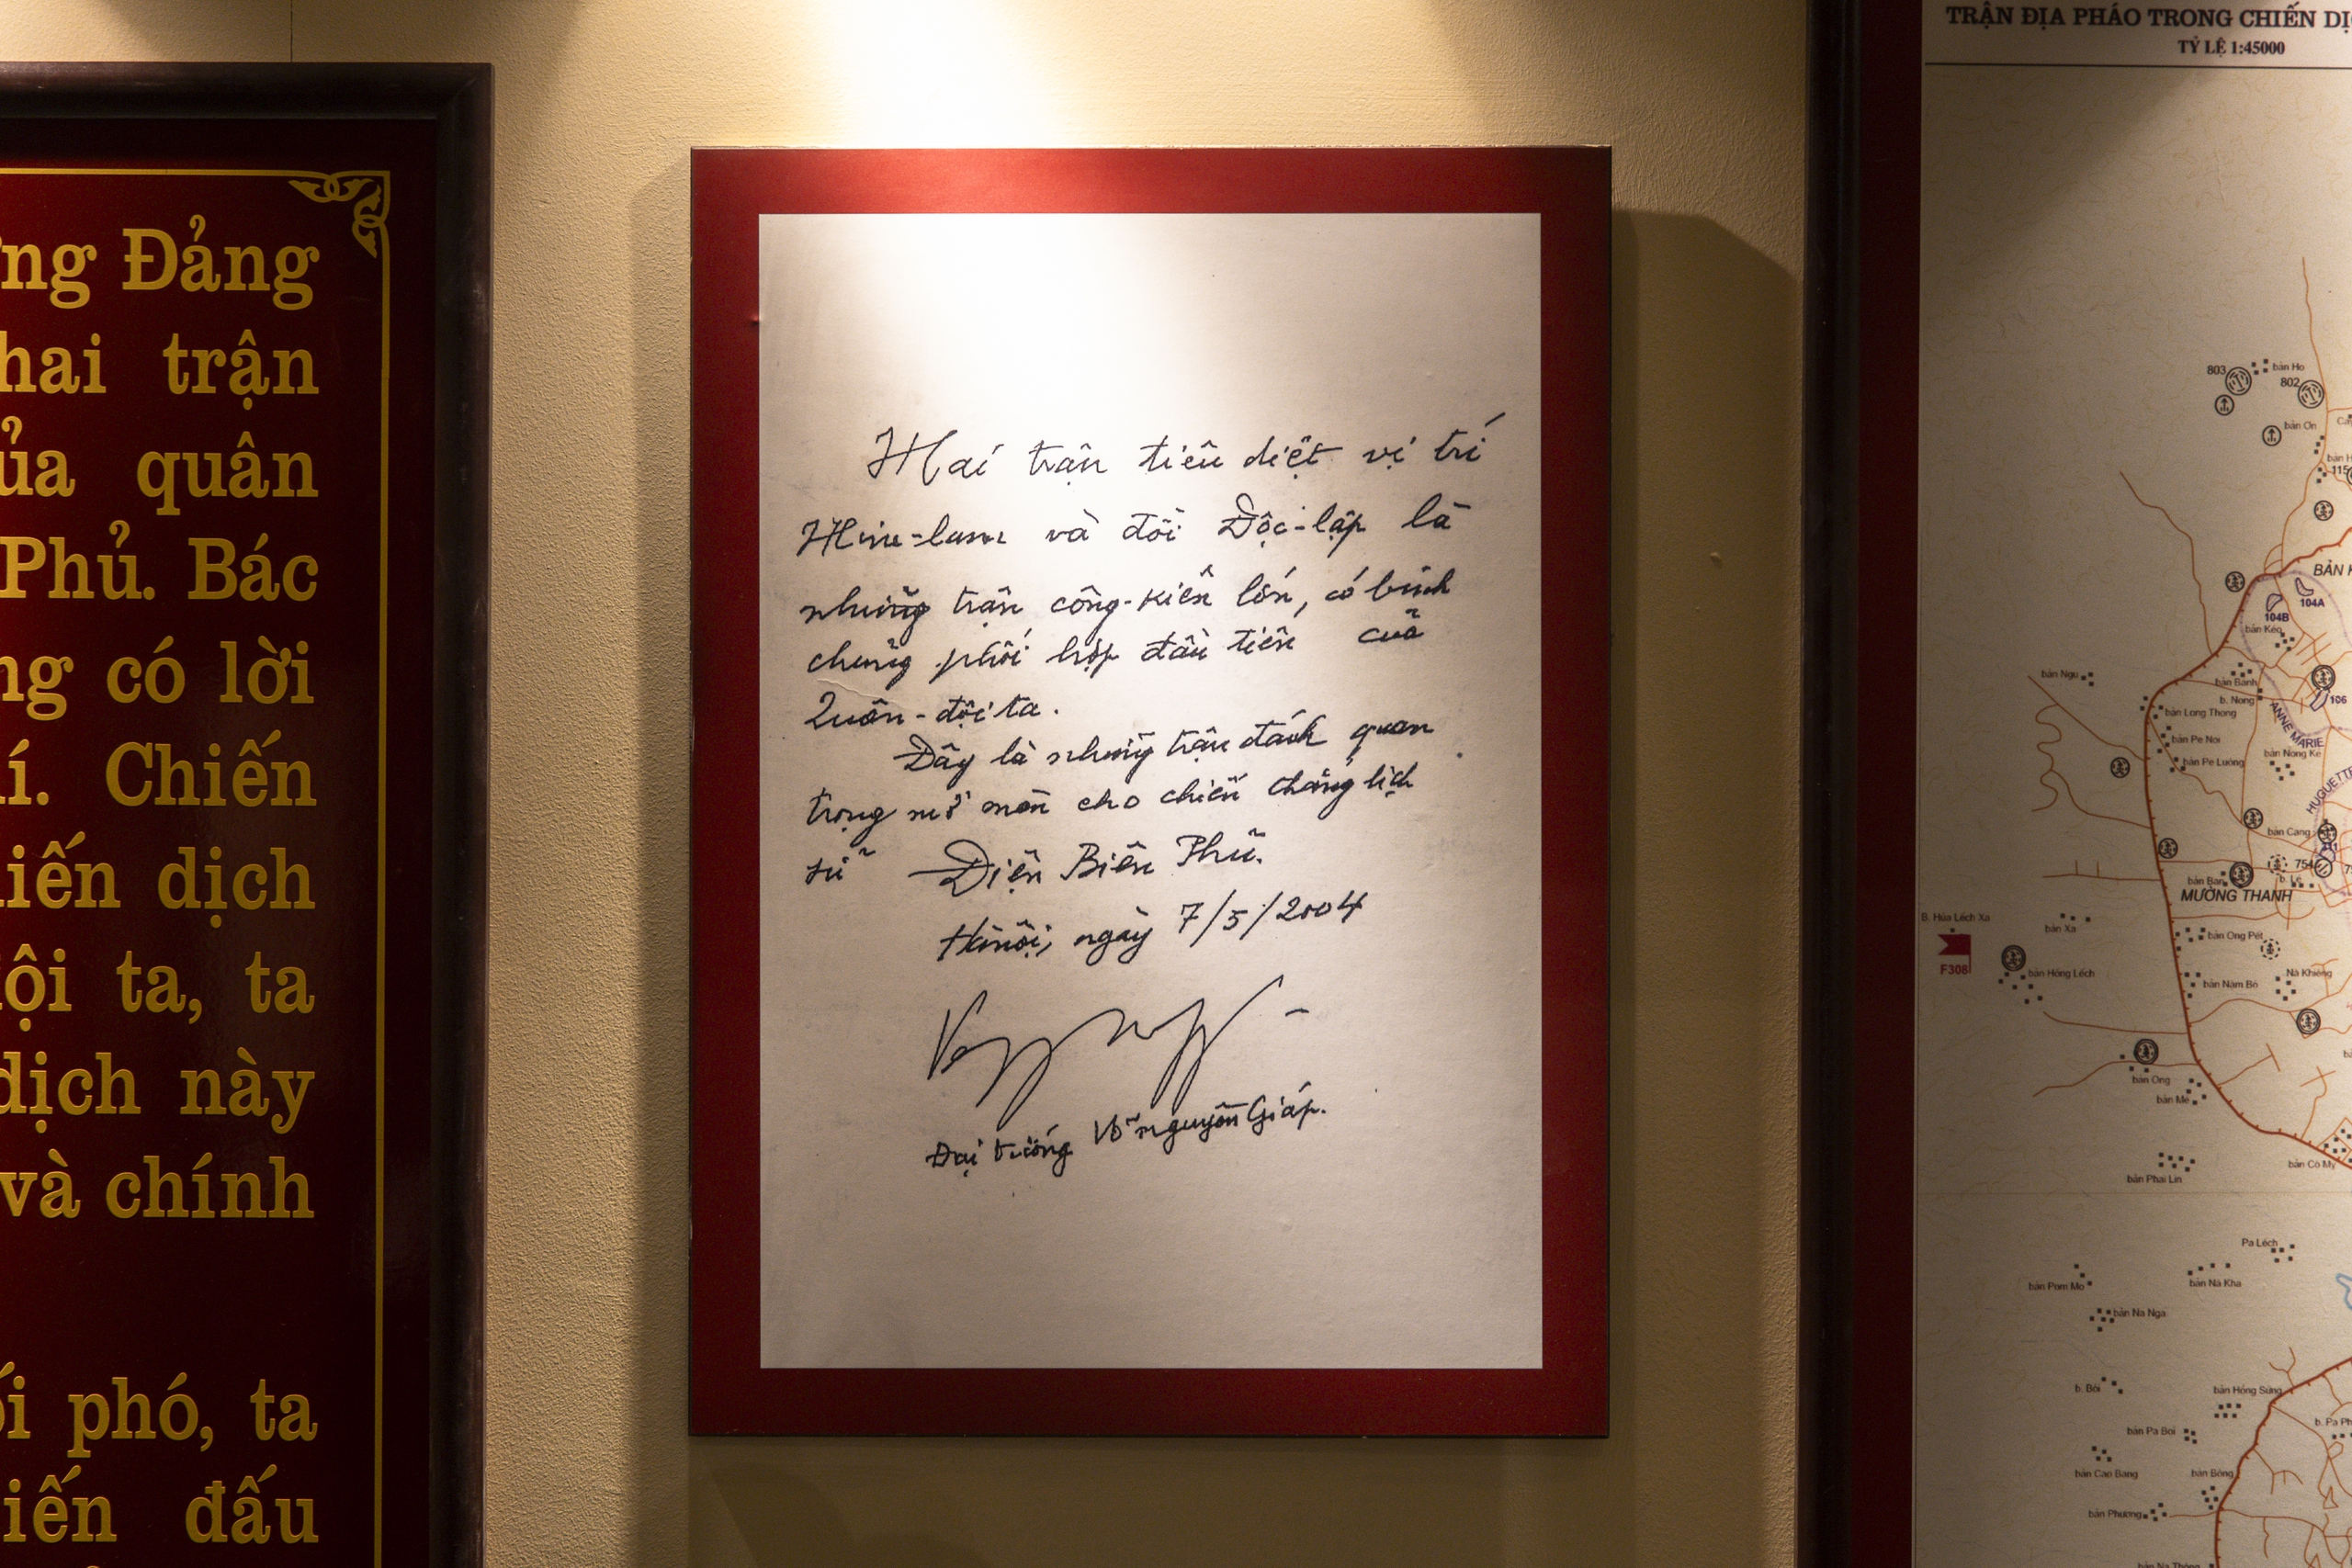 ng Đảng
hai trận
ủa quân
Phủ. Bác
ng có lời
í. Chiến
iến dịch
ội ta, ta
dịch này
và chính
ối phó, ta
iến đấu
Hai trận tiêu diệt vị trí
Him-lam và đồi Độc-lập là
những trận công-kiên lớn, có binh
chủng phối hợp đầu tiên của
Quân-đội ta.
Đây là những trận đánh quan
trọng mở màn cho chiến thắng lịch
sử Điện Biên Phủ.
Hà nội, ngày 7/5/2004
Đại tướng Võ nguyên Giáp.
TRẬN ĐỊA PHÁO TRONG CHIẾN DỊ
TỶ LỆ 1:45000
803
bản Ho
802
bản Ơn
115
BẢN K
104A
104B
bản Kéo
bản Ngu
bản Bánh
b. Nong
106
bản Long Thong
ANNE MARIE
bản Pe Noi
bản Nong Ke
bản Pe Luông
HUGUETTE
bản Cang
bản Ban
b. Le
MƯỜNG THANH
B. Húa Léch Xa
bản Xa
bản Ong Pét
F308
bản Hồng Léch
Nà Khiêng
bản Nâm Bó
bản Ong
bản Mé
bản Cò My
bản Phai Lin
Pa Léch
bản Pom Mo
bản Nà Kha
bản Na Nga
b. Bôi
bản Hồng Súng
bản Pa Boi
bản Cao Bang
bản Bông
bản Phương